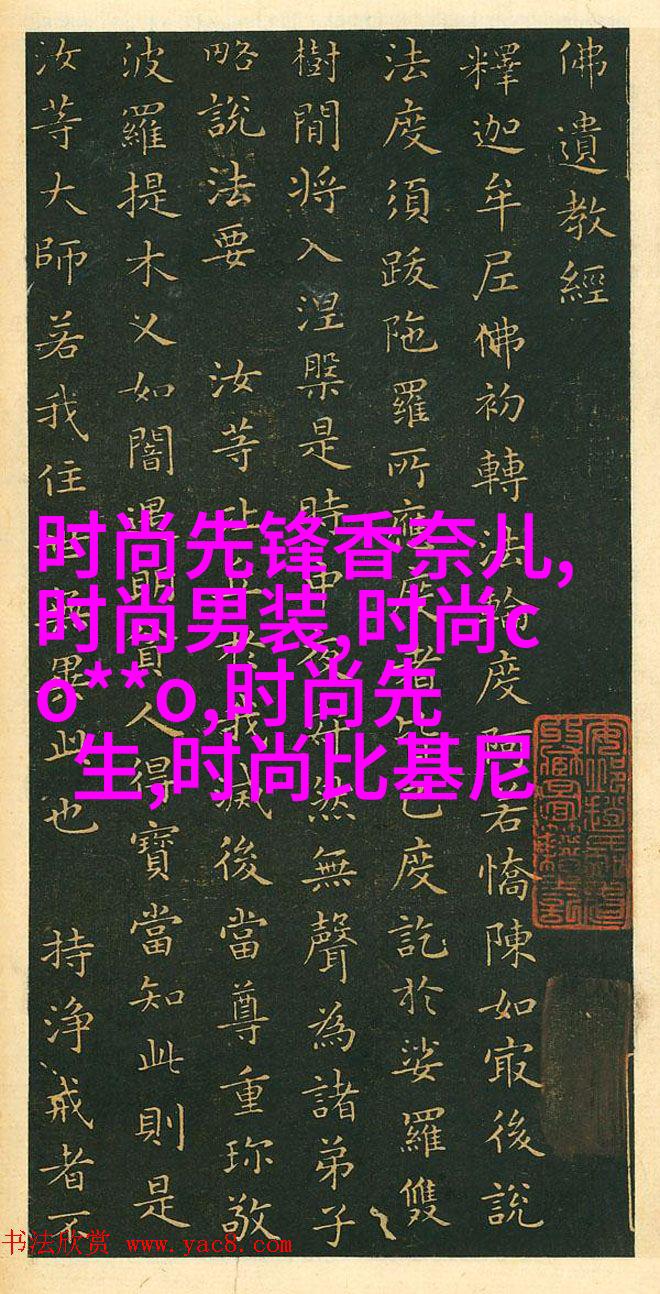 佛遺教經
釋迦牟尼佛初轉法輪度阿若憍陳如冣後說
法度須跋陁羅所應度者皆已度訖於娑羅雙
樹間将入涅槃是時中夜寂然無聲為諸弟子
略說法要 汝等比丘於我滅後當尊重珎敬
波羅提木叉如闇遇明貧人得寶當知此則是
汝等大師若我住世無異此也 持淨戒者不
时尚先锋香奈儿,
时尚男装,时尚c
o**o,时尚先
生,时尚比基尼
书法欣赏 www.yac8.com